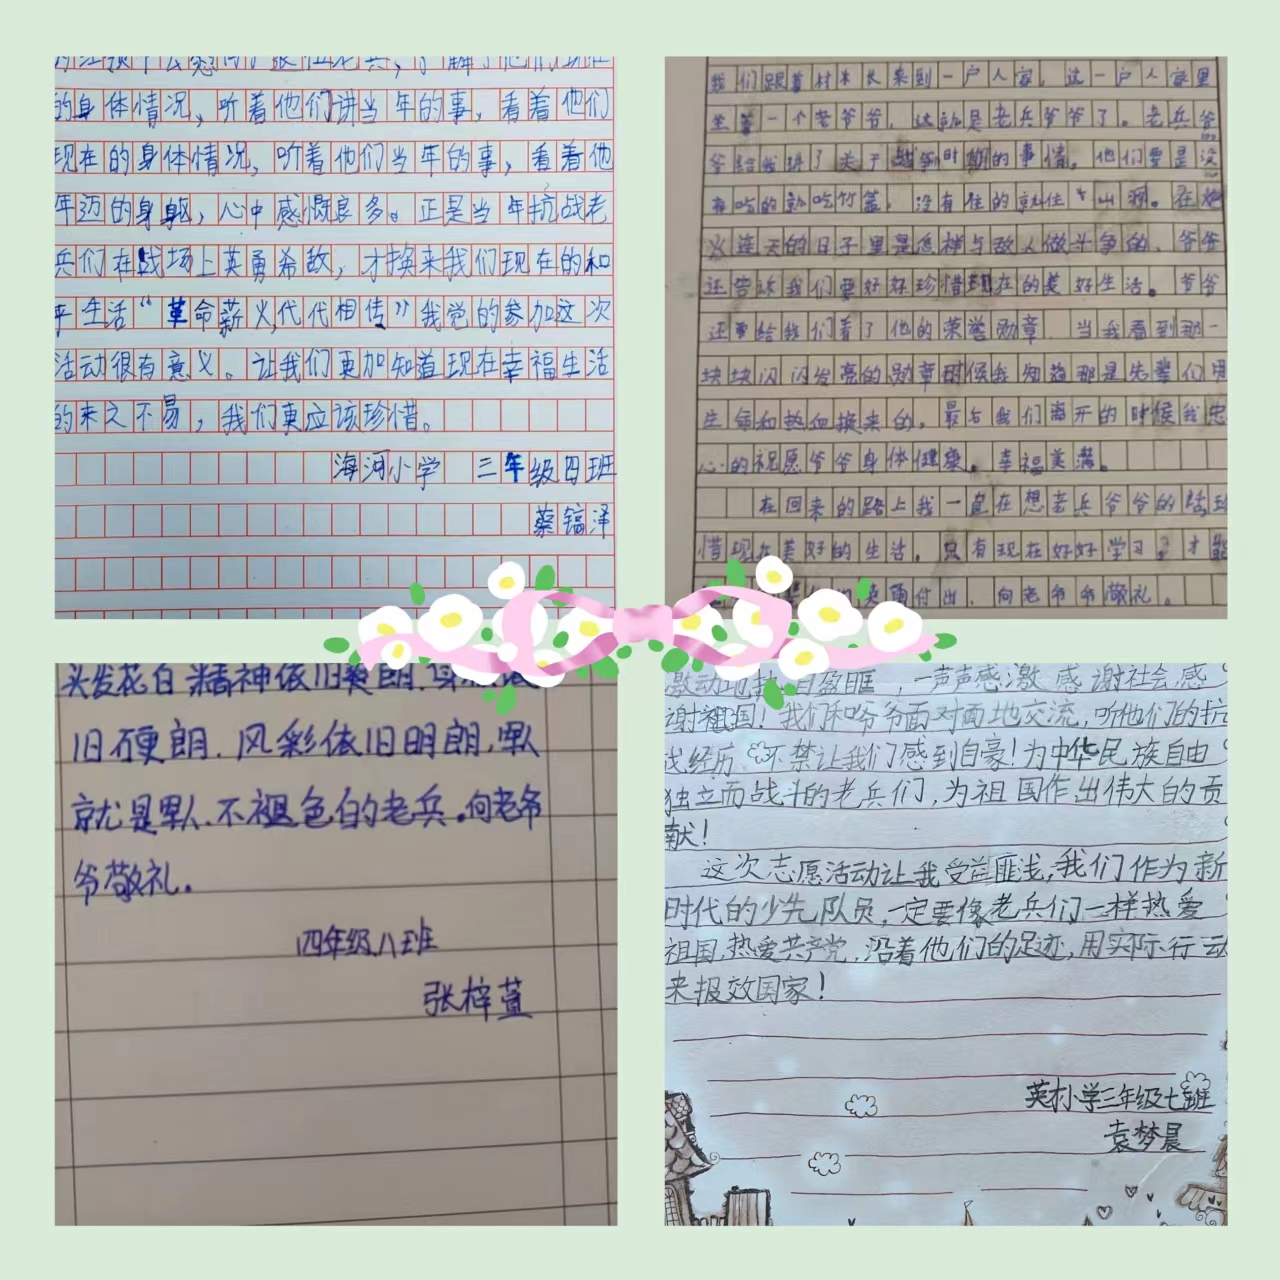 的身体情况，听着他们讲当年的事，看着他们
现在的身体情况，听着他们当年的事，看着他
年迈的身躯，心中感慨良多。正是当年抗战老
兵们在战场上英勇希敌，才换来我们现在的和
平生活“革命薪火代代相传”我觉的参加这次
活动很有意义。让我们更加知道现在幸福生活
的来之不易，我们更应该珍惜。
海河小学 三年级四班
蔡镐泽
我们跟着村本长来到一户人家，这一户人家里
坐着一个老爷爷，这就是老兵爷爷了。老兵爷
爷给我讲了关于战争时期的事情。他们要是没
有吃的就吃竹篮，没有住的就住山洞。在炮
火连天的日子里是怎样与敌人做斗争的、爷爷
还告诉我们要好好珍惜现在的美好生活。爷爷
还要给我们看了他的荣誉勋章 当我看到那一
块块闪闪发亮的勋章时候我知道那是先辈们用
生命和热血换来的。最后我们离开的时候我忠
心的祝愿爷爷身体健康。幸福美满。
在回来的路上我一直在想老兵爷爷的话，珍
惜现在美好的生活。只有现在好好学习，才能
付出 向老爷爷敬礼。
头发花白精神依旧爽朗，
旧硬朗．风彩依旧明朗，
就是 不褪色的老兵。向老爷
爷敬礼。
四年级八班
张梓萱
激动地热 盈眶，一声声感激 感谢社会，感
谢祖国！我们和爷爷面对面地交流，听他们的抗
战经历 不禁让我们感到自豪！为中华民族自由
独立而战斗的老兵们，为祖国作出伟大的贡
献！
这次志愿活动让我受益匪浅，我们作为新
时代的少先队员，一定要像老兵们一样热爱
祖国，热爱共产党，沿着他们的足迹，用实际行动
来报效国家！
英才小学三年级七班
袁梦晨